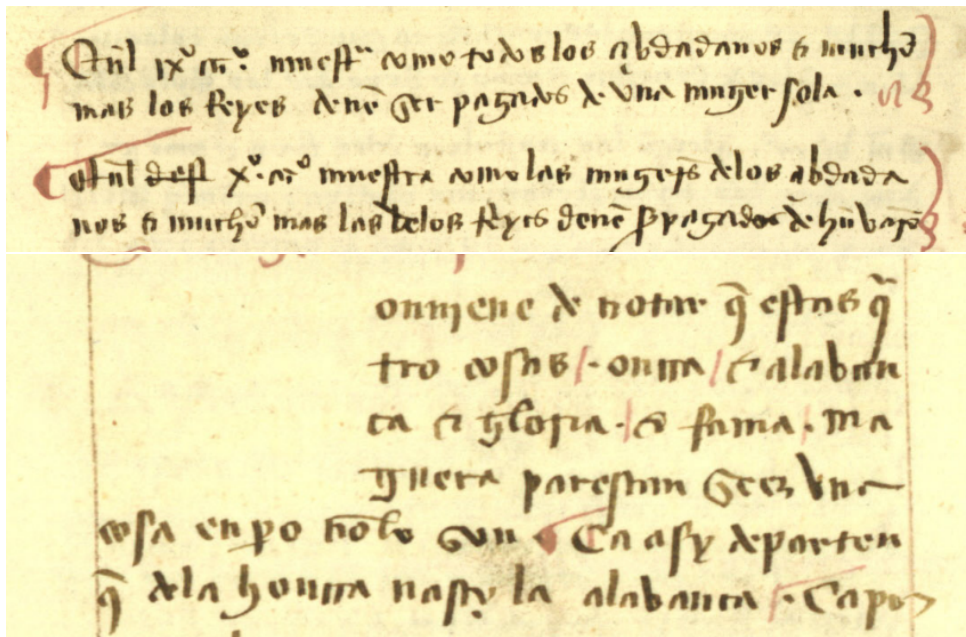 Enl ix° cap° muestra como todos los cibdadanos & mucho
mas los Reyes deuen ser pagados de vna muger sola .
Enl dest x° cap° muestra como las mugeres delos cibdada
nos & mucho mas las delos Reyes deuen ser pagadas de hun varon
onuiene de notar que estas qua
tro cosas / . onrra / & alaban
ça & gloria . / & fama / . ma
guera parescan seer vna
cosa enpero non lo son Ca asy departen
que dela honrra nasçe la alabança . Ca por